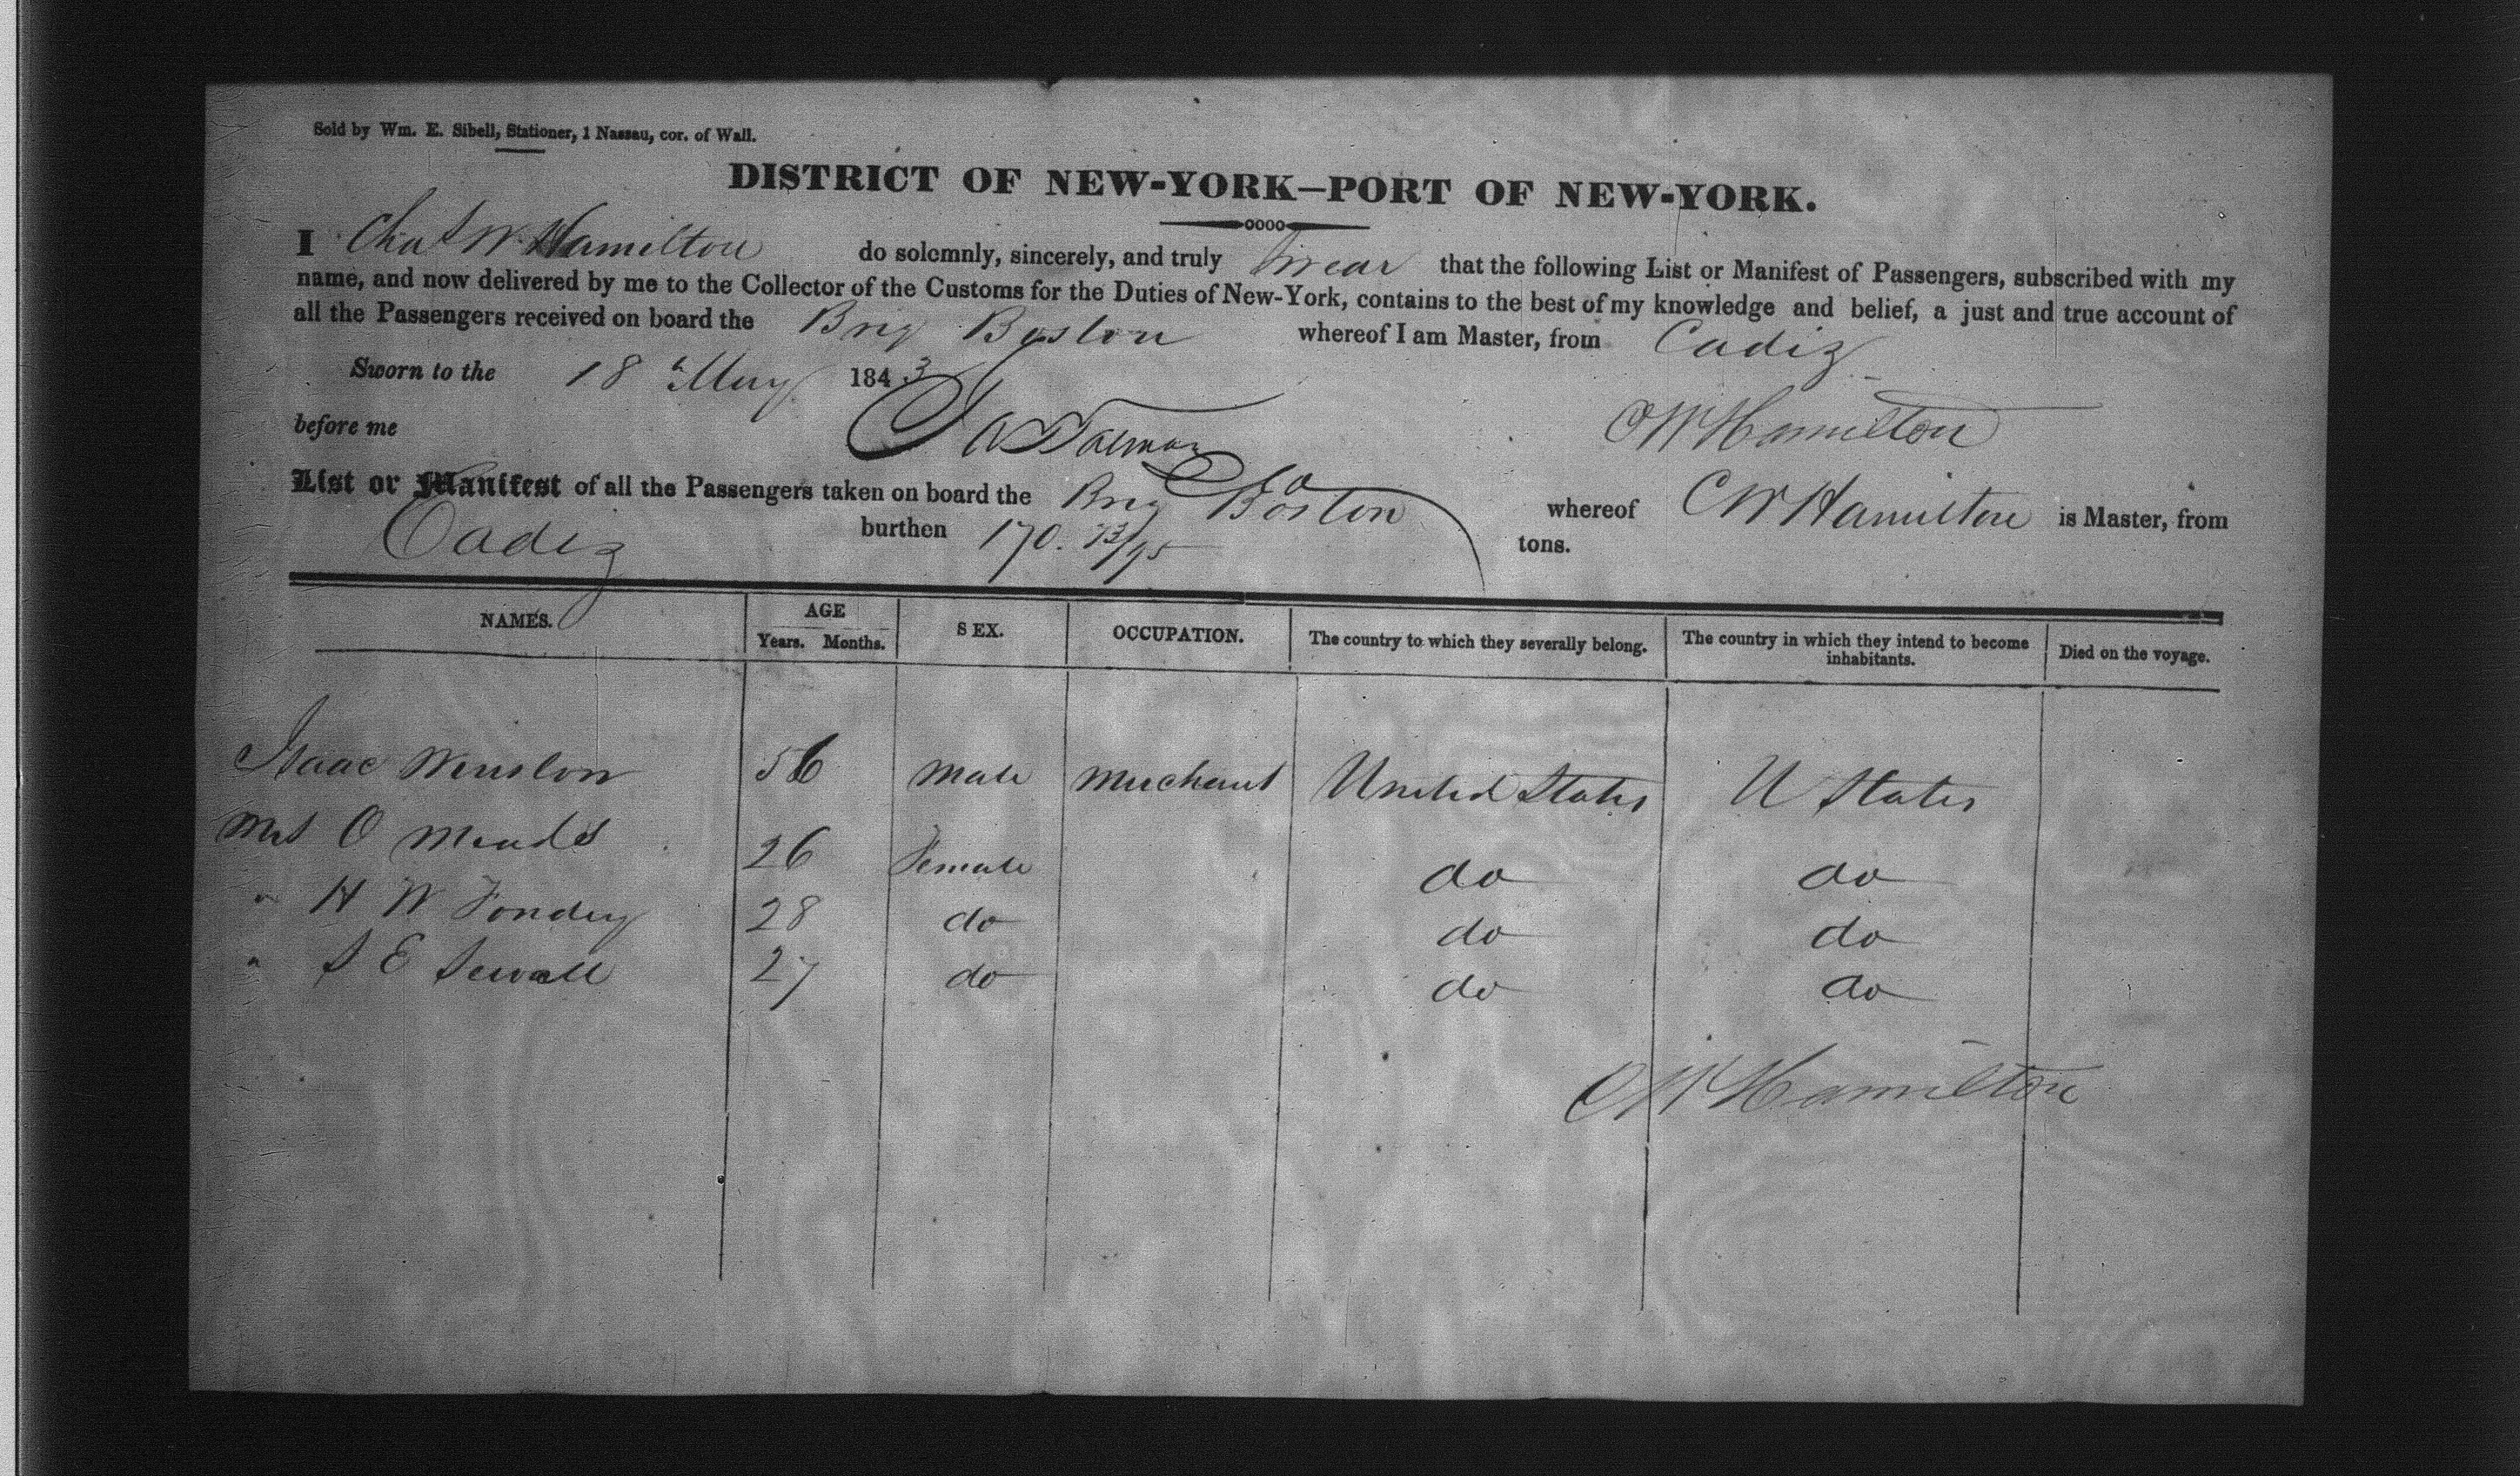 Sold by Wm. E. Sibell, Stationer, 1 Nassau, cor. of Wall.
DISTRICT OF NEW-YORK—PORT OF NEW-YORK.
I Chas W. Hamilton do solemnly, sincerely, and truly swear that the following List or Manifest of Passengers, subscribed with my
name, and now delivered by me to the Collector of the Customs for the Duties of New-York, contains to the best of my knowledge and belief, a just and true account of
all the Passengers received on board the Brig Boston whereof I am Master, from Cadiz
Sworn to the 18 May 1843
before me C W Hamilton
List or Manifest of all the Passengers taken on board the Brig Boston whereof C W Hamilton is Master, from
Cadiz burthen 170. 73/95 tons.
NAMES. AGE Years. Months. SEX. OCCUPATION. The country to which they severally belong. The country in which they intend to become inhabitants. Died on the voyage.
Isaac Winslow 56 male Merchant United States U States
Mrs O Meads 26 Female do do
" H W Fondey 28 do do do
" S E Sewall 27 do do do
C W Hamilton